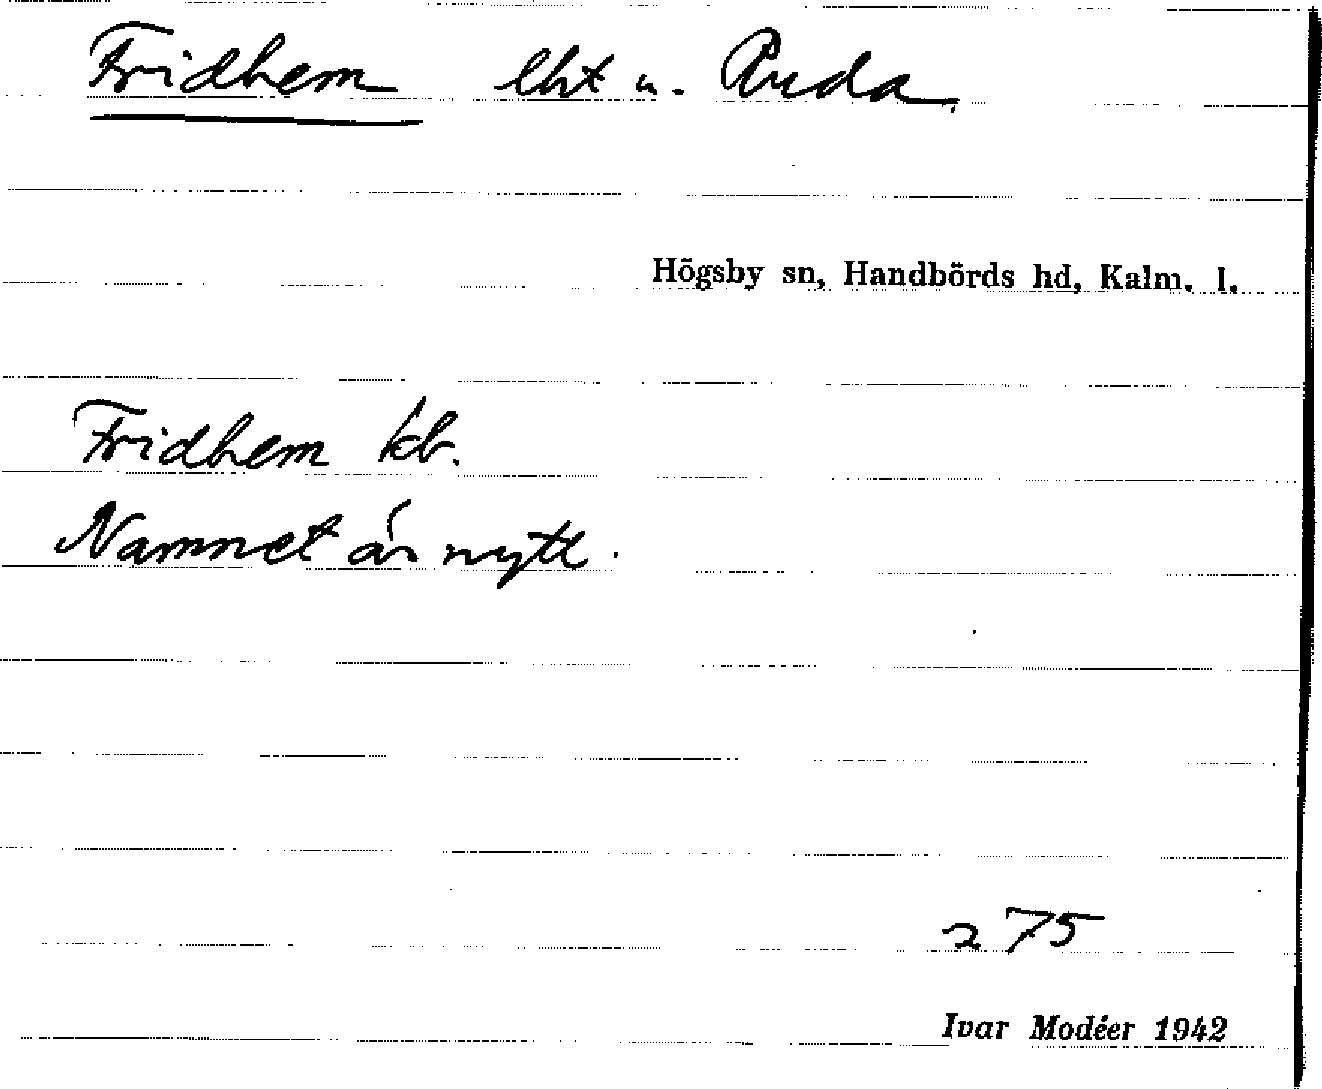 Fridhem lht u. Ruda.
Högsby sn, Handbörds hd, Kalm. l.
Fridhem kb.
Namnet är nytt.
275
Ivar Modéer 1942